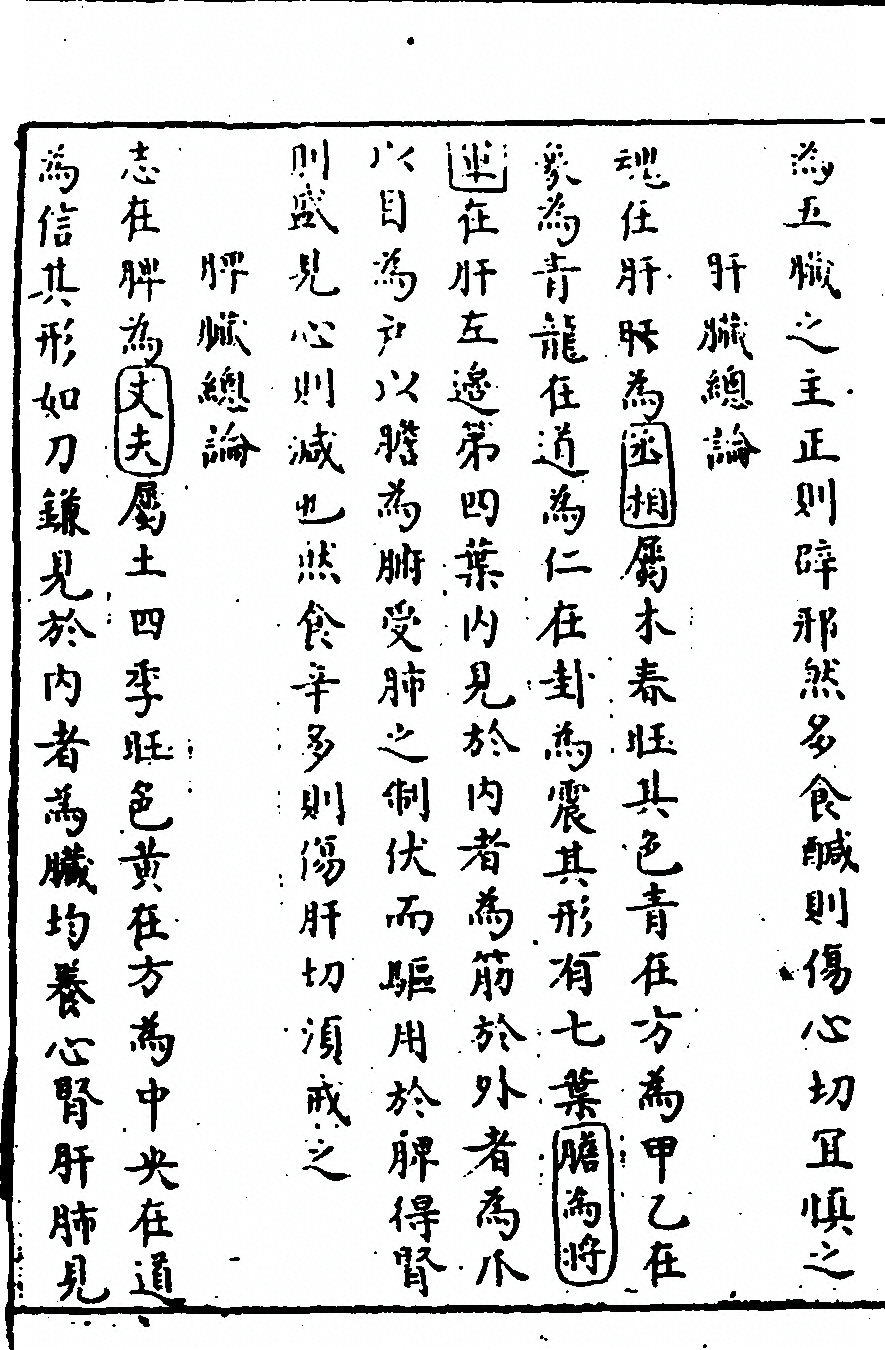 為五臟之主正則辟邪然多食醎則傷心切宜慎之
肝臟總論
魂在肝肝為丞相屬木春旺其色青在方為甲乙在
象為青龍在道為仁在卦為震其形有七葉膽為將
在肝左邊第四葉内見於内者為筋於外者為爪
以目為戶以膽為腑受肺之制伏而驅用於脾得腎
則盛見心則减也然食辛多則傷肝切須戒之
脾臟總論
志在脾為丈夫屬土四季旺色黄在方為中央在道
為信其形如刀鎌見於内者為臟均養心腎肝肺見